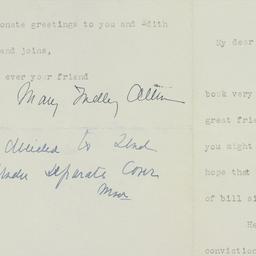 onate greetings to you and Edith
and joins,
ever your friend
Mary
decided to send
under separate cover
My dear
book very
great frien
you might
hope that
of bill si
He
conviction